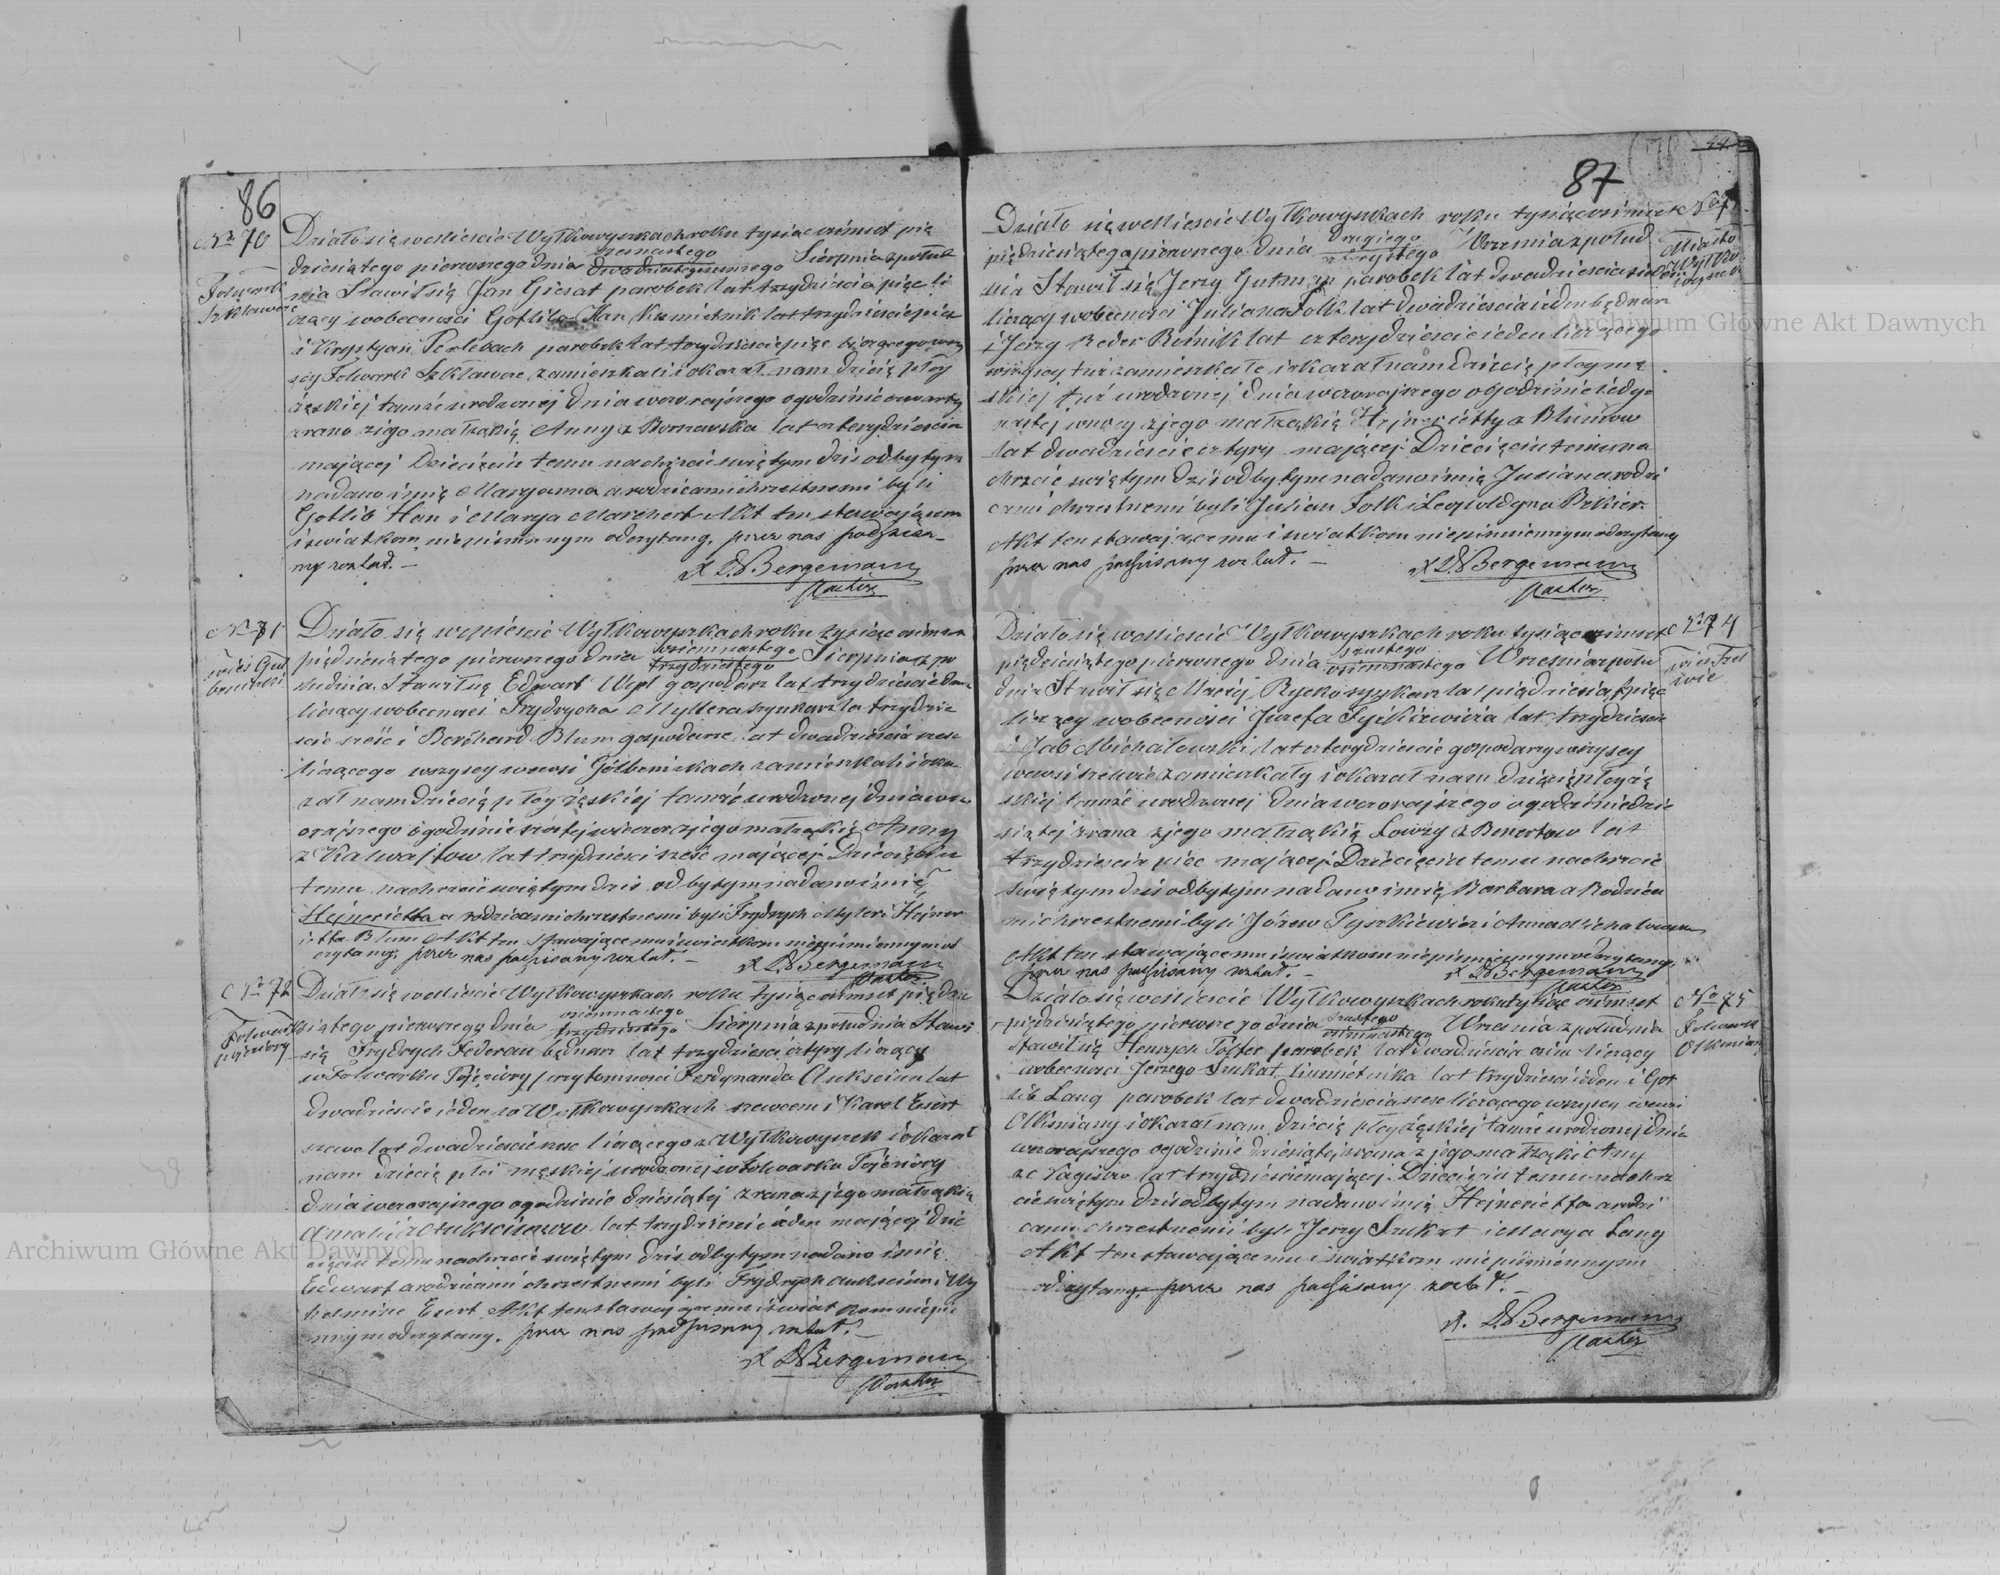 86
No 70
Folwark
Szklawce
Działo się w Mieście Wyłkowyszkach roku tysiąc ośmset pię
dziesiątego pierwszego dnia szesnastego Sierpnia z połud
dwudziestego ósmego
nia Stawił się Jan Giesat parobek lat trzydzieści pięć li
czący w obecności Gotliba Han Kumietnik lat trzydzieści pięć
i Krystyan Perlebach parobek lat trzydzieści pięć liczącego wszy
scy Folwark Szklawce zamieszkali i okazał nam dziecię płcy
żęskiej tamże urodzonej dnia wczorajszego o godzinie czwarty
z rana z jego małżąkię Anny z Bornawska lat czterydzieścia
mającej Dziecięciu temu na chrzcie świętym dziś odbytym
nadano imię Maryanna a rodzicami chrzestnemi byli
Gotlib Han i Marya Marchert Akt ten stawającem
i świadkom niepismnnym odczytany, przez nas podpisa-
ny został. —
X. D. Bergemann
Pastor
No 71
Działo się w Mieście Wyłkowyszkach roku tysiąc ośmset
piędziesiątego pierwszego dnia osiemnastego Sierpnia z po
trzydziestego
łudnia Stawił się Edwart Wepl gospodarz lat trzydzieście
liczący w obecności Frydrycha Myllera szynkarz lat trzydzie
ście sześć i Bernhard Blum gospodarze lat dwadzieścia
liczącego wszyscy we wsi zamieszkali i oka
zał nam dziecię płcy żęskiej tamże urodzonej dnia wcz
orajszego o godzinie szóstej wieczor z jego małżąkię Anny
z Kalwajtow lat trzydzieści sześć mającej Dziecięciu
temu na chrzcie świętym dziś odbytym nadano imię
Hejnerietta a rodzicami chrzestnemi byli Frydrych Myler i Hejner
ietta Blum Akt ten stawającemu i świadkom niepismiennym od
czytany, przez nas podpisany został. —
X. D. Bergemann
Pastor
No 72
Folwark
Pojeziory
Działo się w Mieście Wyłkowyszkach roku tysiąc ośmset pięćdzie
siątego pierwszego dnia osiemnastego Sierpnia z południa Stawi
trzydziestego
się Frydrych Federau bednarz lat trzydzieści cztyry liczący
w Folwarku Pojeziory przytomności Ferdynanda lat
dwadzieście ieden z Wyłkowyszkach szewcem i Karol Esert
szewc lat dwadzieście liczącego z Wyłkowyszek i okazał
nam dziecię płci męskiej urodzonej w Folwarku Pojeziory
dnia wczorajszego o godzinie dziesiątej z rana z jego małżąkię
Amalii z lat trzydzieście ieden mającej dzie
cięciu temu na chrzcie świętym dziś odbytym nadano imię
Edwart a rodzicami chrzestnemi byli Frydrych i Wy
helmine Esert Akt ten stawającemu i świadkom niepis
mnnym odczytany, przez nas podpisany został. —
X. D. Bergemann
Pastor
87
No 73
Miasto
Wyłko
wyszki
Działo się w Mieście Wyłkowyszkach roku tysiąc ośmset
pięćdziesiątego pierwszego dnia drugiego Wrzesnia z połud
czternastego
nia Stawił się Jerzy Gutman parobek lat dwadzieścia siedm
liczący w obecności Juliana Folk lat dwadzieścia ieden będnarz
i Jerzy Reder Rolnik lat czterydzieście ieden liczącego
wszyscy tuż zamieszkałe i okazał nam dziecię płcy mę
skiej tuż urodzonej dnia wczorajszego o godzinie iedyn
nastej w nocy z jego małżąkię Hejnerietty z Blumow
lat dwadzieście cztyry mającej Dziecięciu temu na
chrzcie świętym dziś odbytym nadano imię Julian a rodzi
cami chrzestnemi byli Julian Folk i Leopoldyna Bekier.
Akt ten stawającemu i świadkom niepismiennym odczytany
przez nas podpisany został. —
X D. Bergemann
Pastor
No 74
Działo się w Mieście Wyłkowyszkach roku tysiąc ośmset
pięćdziesiątego pierwszego dnia szóstego Wrzesnia z połu
osiemnastego
dnia Stawił się Maciej Ryckoszyzkarz lat pięćdziesiąt pięć
liczący w obecności Józefa Tyszkiewicza lat trzydzieści
i Jab Michałowski lat czterydzieście gospodarzy wszyscy
we wsi zamieszkały i okazał nam dziecię płcy żę
skiej tamże urodzonej dnia wczorajszego o godzinie dzie
siątej z rana z jego małżąkię Lowizy z Benertow lat
trzydzieścia pięć mającej Dziecięciu temu na chrzcie
świętym dziś odbytym nadano imię Barbara a Rodzica
mi chrzestnemi byli Józew Tyszkiewicz i Anna Michałowska
Akt ten stawającemu i świadkom niepismiennym odczytany,
przez nas podpisany został. —
X D. Bergemann
Pastor
No 75
Folwark
Olkmiany
Działo się w Mieście Wyłkowyszkach roku tysiąc ośmset
pięćdziesiątego pierwszego dnia szóstego Wrzesnia z południa
osiemnastego
stawił się Henrych Tolter parobek lat dwadzieścia osim liczący
w obecności Jerzego Szukat kumietnika lat trzydzieści ieden i Got
lib Lang parobek lat dwadzieścia szesć liczącego wszyscy we wsi
Olkmiany i okazał nam dziecię płcy żęskiej tamże urodzonej dnia
wczorajszego o godzinie dziesiątej z rana z jego małżąki Any
z Lagisow lat trzydzieście mającej Dziecięciu temu na chrz
cie świętym dziś odbytym nadano imię Hejnerietta a rodzi
cami chrzestnemi byli Jerzy Szukat i Marya Lang
Akt ten stawającemu i świadkom niepismiennym
odczytany, przez nas podpisany został. —
X. D. Bergemann
Pastor
ARCHIWUM GŁÓWNE
Archiwum Główne Akt Dawnych
Archiwum Główne Akt Dawnych